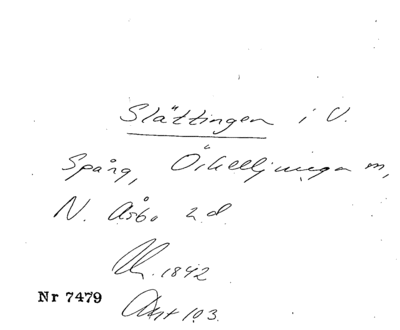 Slättingen i V.
Spång, Örkelljunga
N. Åsbo
1842
Nr 7479
103.